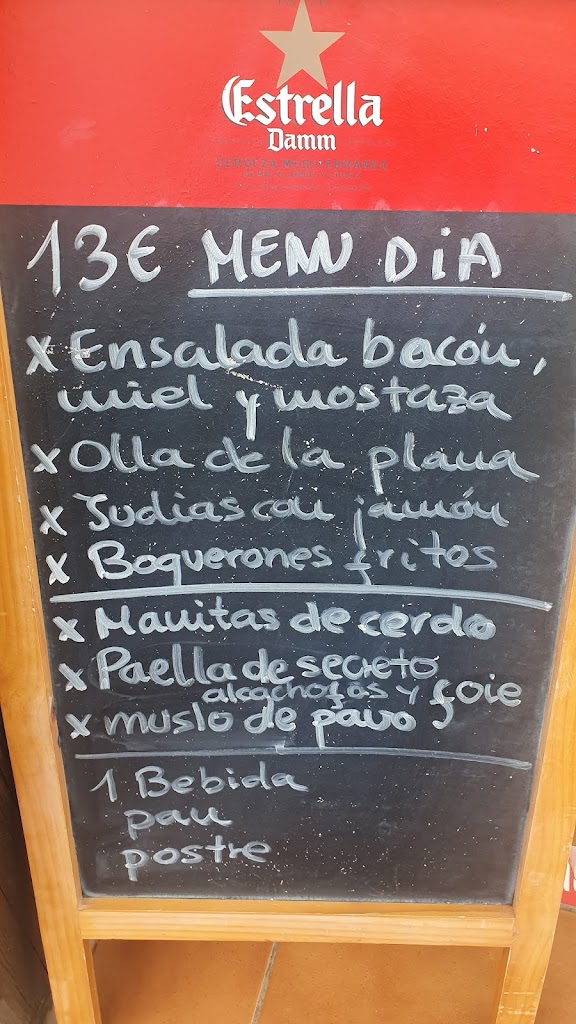 Estrella
Damm
CERVEZA MEDITERRÁNEA
13€ MENU DIA
x Ensalada bacón,
miel y mostaza
x Olla de la plana
x Judias con jamón
x Boquerones fritos
x Manitas de cerdo
x Paella de secreto
alcachofas y foie
x muslo de pavo
1 Bebida
pan
postre